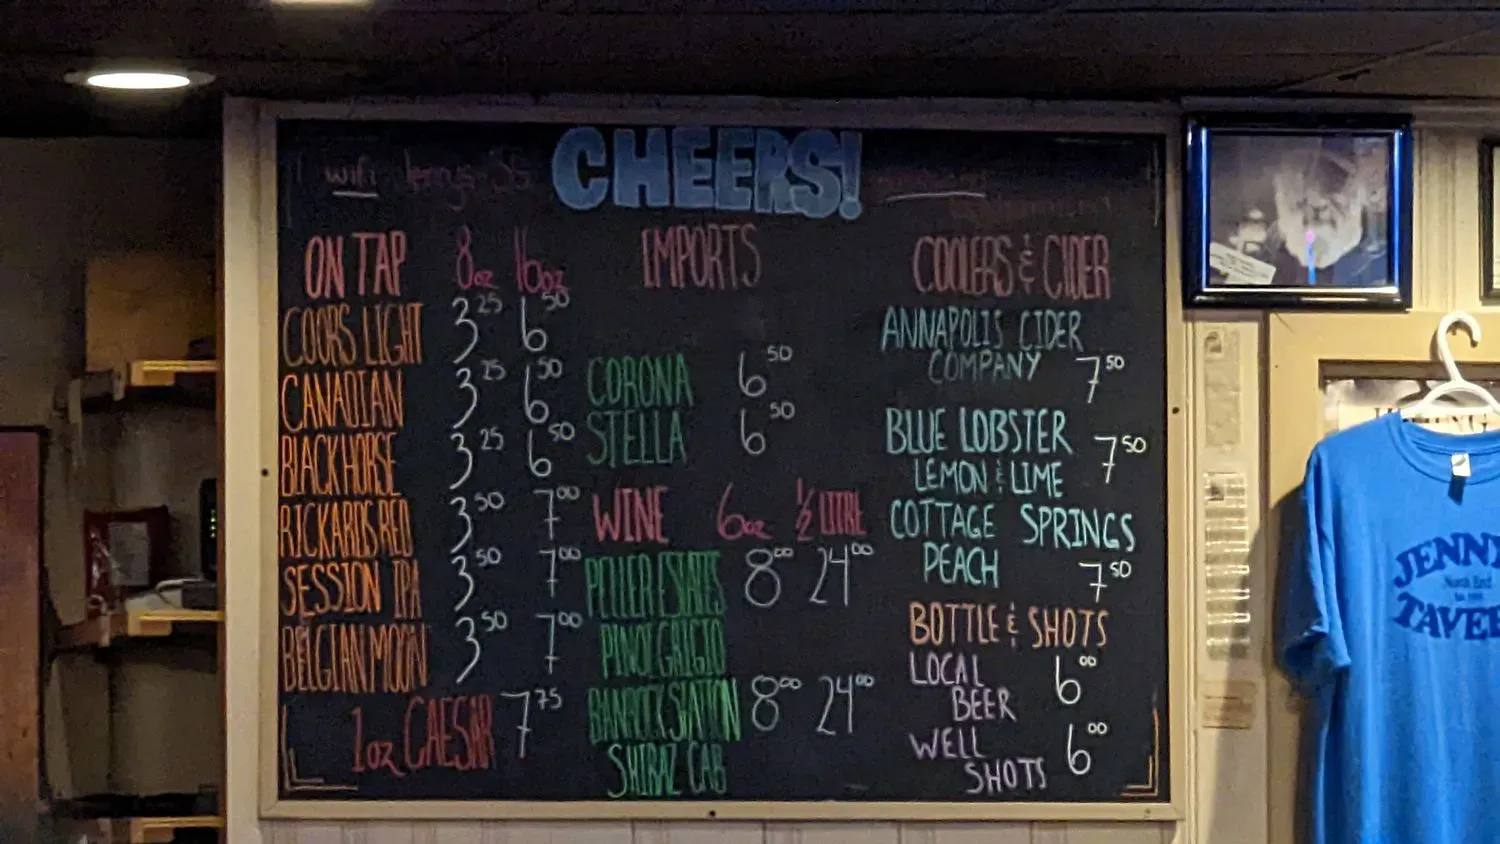 CHEERS!
wifi
ON TAP 8oz 16oz
COORS LIGHT 3.25 6.50
CANADIAN 3.25 6.50
BLACKHORSE 3.25 6.50
RICKARDS RED 3.50 7.00
SESSION IPA 3.50 7.00
BELGIAN MOON 3.50 7.00
1oz CAESAR 7.75
IMPORTS
CORONA 6.50
STELLA 6.50
WINE 6oz ½ LITRE
PELLER ESTATES 8.00 24.00
PINOT GRIGIO
BANROCK STATION 8.00 24.00
SHIRAZ CAB
COOLERS & CIDER
ANNAPOLIS CIDER
COMPANY 7.50
BLUE LOBSTER 7.50
LEMON & LIME
COTTAGE SPRINGS
PEACH 7.50
BOTTLE & SHOTS
LOCAL 6.00
BEER
WELL 6.00
SHOTS
JENNY
North End
TAVER